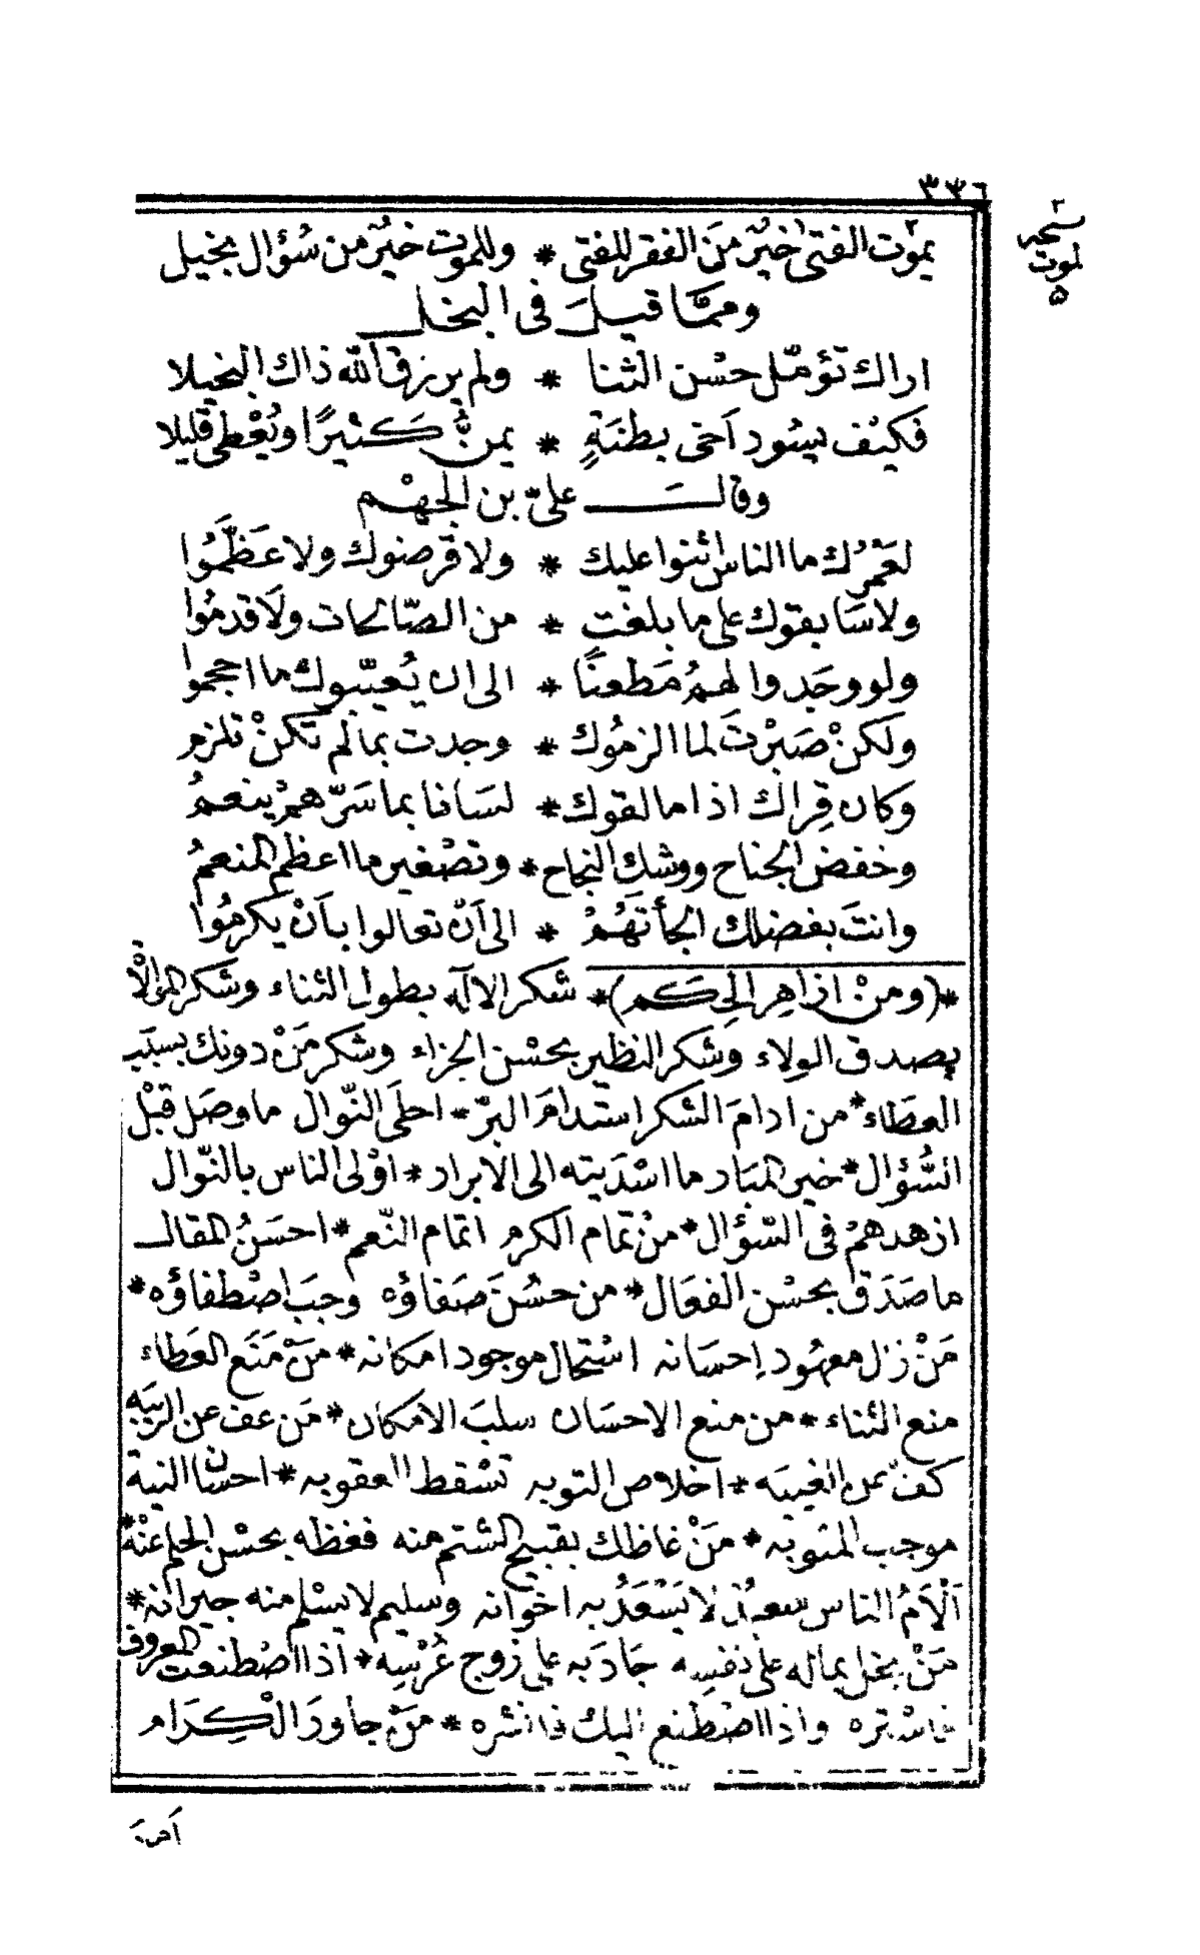 ٣٣٦
يموت الفتى خيرٌ مَن الفقر للفتى * وللموت خيرٌ من سُؤال بخيل
لموت
ومما قيل فى البخل
اراك تؤمّل حسْن الثنا * ولم يرزق الله ذاك البخيلا
فكيف يسُود اَخى بطنَةٍ * يمنُّ كثيرًا ويُعْطى قليلا
وقال علىّ بن الجهْم
لعَمْرُك ما الناس اثنوا عليك * ولا قرضوك ولا عَظَّمُوا
ولا سَابقوك على ما بلغت * من الصّالحات ولَا قدمُوا
ولو وجَدوا لهمُ مَطعنًا * الى ان يُعيّبوك ما احجموا
ولكنْ صَبرْتَ لما الزمُوك * وجدت بما لم تكنْ تلزم
وكان قِراك اذا ما لقوك * لسَانا بما سَرّهمْ ينعمُ
وخفض الجناح ووشك النجاح * وتصْغير ما اعظم المنعمُ
وانتَ بفضلك الجأتهُمْ * الى اَنْ تعالوا باَنْ يكرمُوا
*(ومنْ ازاهر الحِكَم)* شكر الاله بطول الثناء وشكر المَوْلَى
بصدق الولاء وشكر النظير بحسْن الجزاء وشكر مَنْ دونك بسيب
العطَاء * من ادامَ الشكر استدامَ البرّ * احلَى النّوال ما وصَل قبْل
السُّؤال * خير المبَار ما اسْدَيته الى الابرار * اوْلى الناس بالنّوال
ازهدهمْ فى السّؤال * منْ تمام الكرم اتمام النّعم * احسَنُ المقال
ما صَدَق بحسْن الفعَال * من حسُنَ صَفاؤه وجبَ اصْطفاؤه *
مَنْ زل معهود اِحسَانه اسْتحال موجود امكانه * منْ مَنَع العَطاء
منع الثناء * من منع الاحسَان سلبَ الامكان * مَن عف عن الريبَه
كفّ عن الغيبَه * اخلاص التوبه تسْقط العقوبه * احسَان النية
موجب المثوبه * مَنْ غاظك بقبيح الشتم منه فغظه بحسْن الحلم عنْهُ *
اَلْاَمُ الناس سعيدٌ لا يَسْعَدُ به اخوانه وسليم لا يسْلم منه جيرانه *
مَنْ بخل بماله على نفسِه جَادَ به على زوج عُرْسِه * اذا اصْطنعت المعروف
فاسْتره واذا اصْطنع اليك فانشره * مَنْ جاورَ الْكِرَام
اَمِنَ